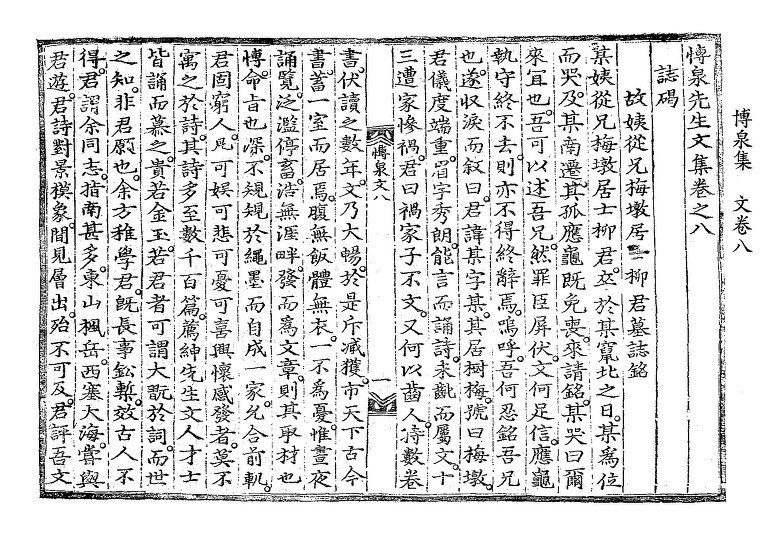 博泉集 文卷八
博泉先生文集卷之八
誌碣
故姨從兄梅墩居士柳君墓誌銘
某姨從兄梅墩居士柳君卒於某竄北之日某爲位
而哭及某南遷其孤應龜旣免喪來請銘某哭曰爾
來宜也吾可以述吾兄然罪臣屛伏文何足信應龜
執守終不去則亦不得終辭焉嗚呼吾何忍銘吾兄
也遂収淚而叙曰君諱某字某其居樹梅號曰梅墩
君儀度端重眉宇秀朗能言而誦詩未齔而屬文十
三遭家慘禍君曰禍家子不文又何以齒人持數卷
博泉文八 一
書伏讀之數年文乃大暢於是斥减獲市天下古今
書蓄一室而居焉腹無飯體無衣一不爲憂惟晝夜
誦覽泛濫停畜浩無涯畔發而爲文章則其取材也
博命旨也深不規規於繩墨而自成一家允合前軌
君固窮人凡可娛可悲可憂可喜興懷感發者莫不
寓之於詩其詩多至數千百篇薦紳先生文人才士
皆誦而慕之貴若金玉若君者可謂大翫於詞而世
之知非君願也余方稚學君旣長事鈆槧效古人不
得君謂余同志指南甚多東山楓岳西塞大海嘗與
君遊君詩對景模象間見層出殆不可及君評吾文